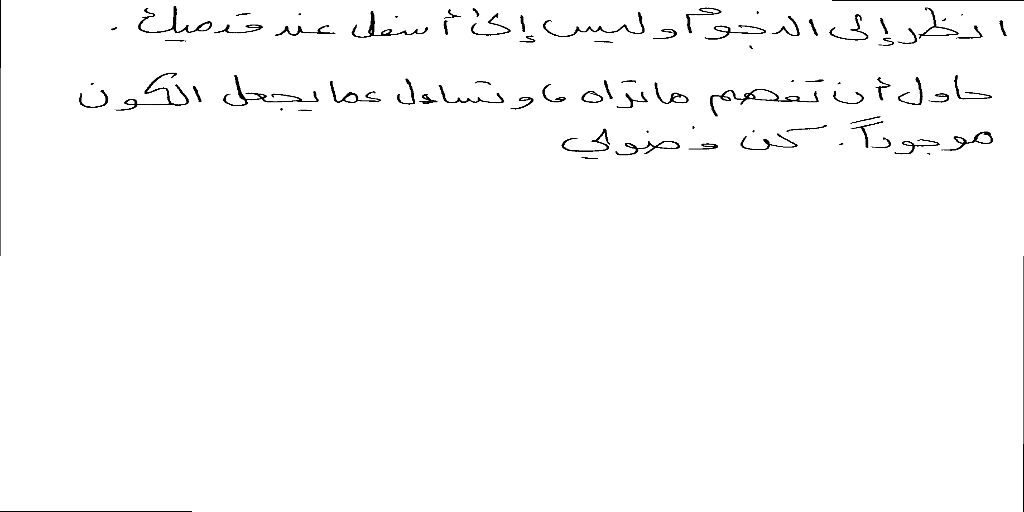 انظر إلى النجوم وليس إلى أسفل عند قدميك.
حاول أن تفهم ماتراه، وتساءل عما يجعل الكون
موجوداً. كن فضولي